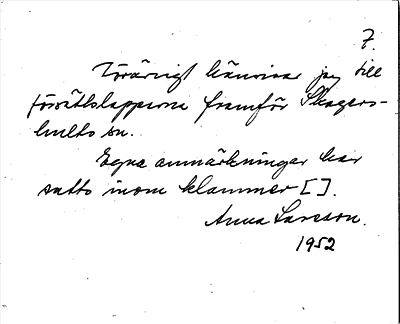 7.
Övrigt hänvisar jag till
försättslapparna framför Skagers-
hults sn.
Egna anmärkningar har
satts inom klammer [ ].
Anna Larsson.
1952